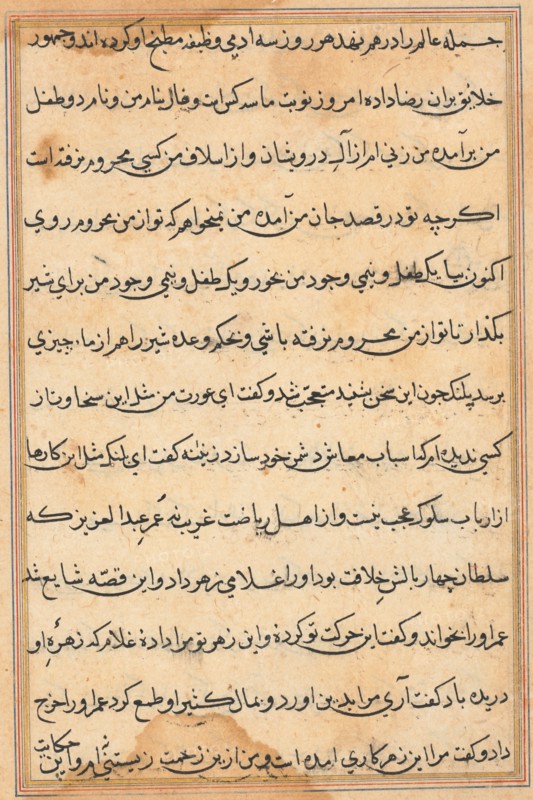 جمله عالم را در هم نهد هر روز سه ادمی وظیفه مطبخ او کرده اند و جمهور
خلایق بران رضا داده امروز نوبت ما سه کس است و فال بنام من و نام دو طفل
من برآمده من زنی ام از آل درویشان و از اسلاف من کسی محروم نرفته است
اکرچه تو در قصد جان من آمده من نمیخواهم که تو از من محروم روی
اکنون بیا یک طفل و نیمی وجود من بخور و یک طفل و نیمی وجود من برای شیر
بکذار تا تو از من محروم نرفته باشی و بحکم وعده شیر را هم از ما چیزی
برسد پلنک چون این سخن بشنید متعجب شد و کفت ای عورت من مثل این سخاوت از
کسی ندیده ام که اسباب معاش دشمن خود سازد زن کفت ای پلنک مثل این کارها
از ارباب سلوک عجب نیست و از اهل ریاضت غریب نه عمر عبدالعزیز که
سلطان چهار بالش خلافت بود او را غلامی زهر داد و این قصّه شایع شد
عمر او را بخواند و کفت این حرکت تو کردهٔ و این زهر تو مرا دادهٔ غلام که زهرهٔ او
دریده باد کفت آری مرا بدین اورد و بمال کثیر او طمع کرد عمر او را خرج
داد و کفت مرا این زهر کاری امده است و من ازین زحمت زیستنی نه ام و این حکایت